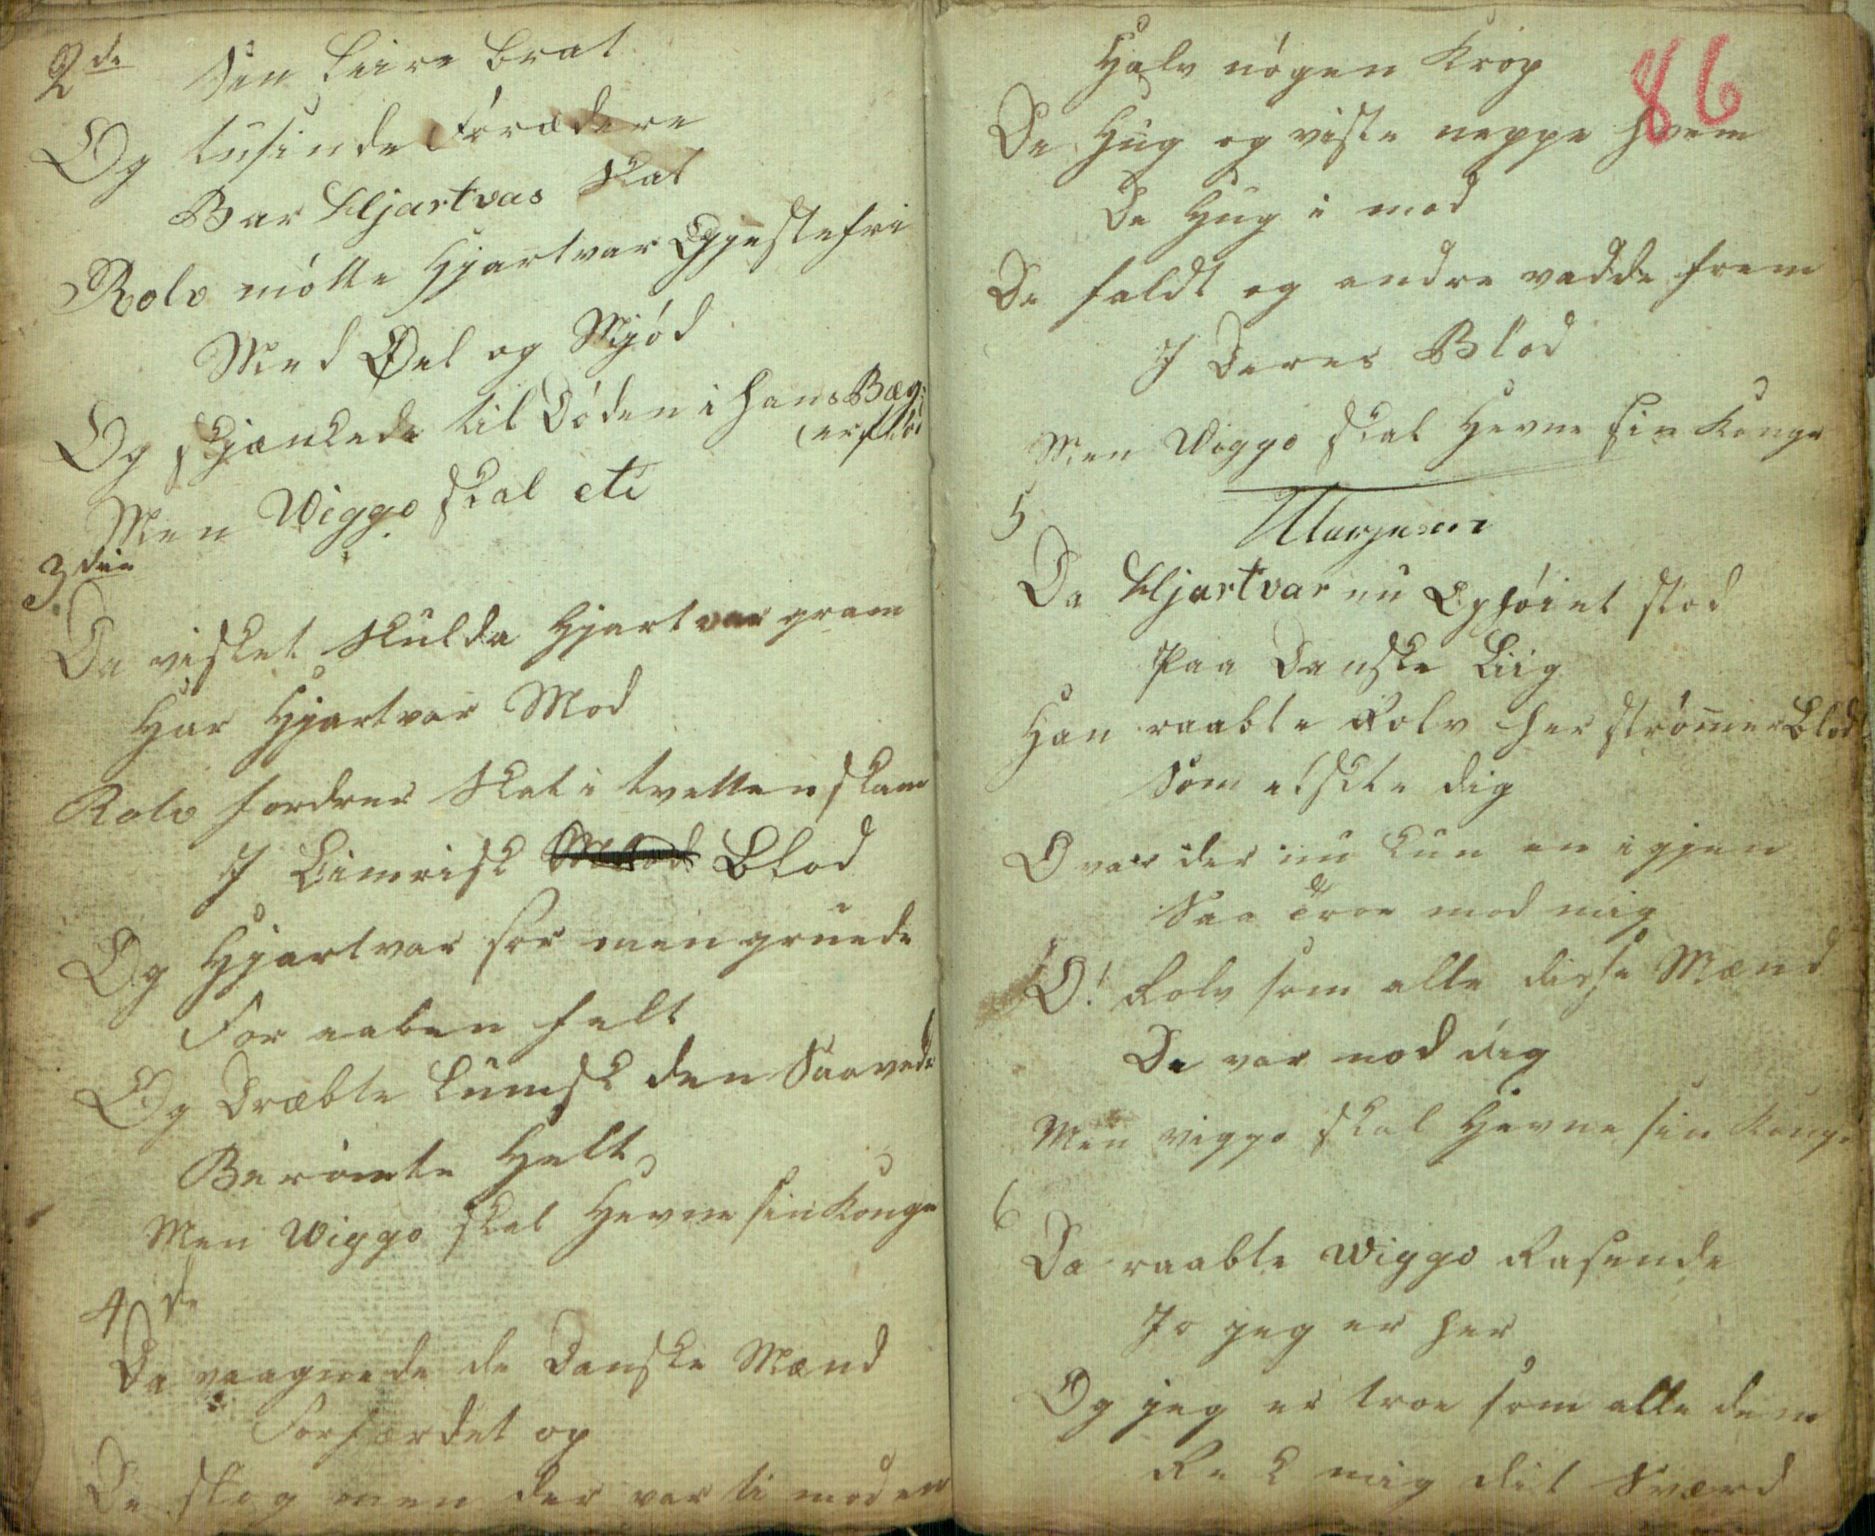 2de Sen Leire brat
Og tusinde Forædere
Bar Hjartvas Skat
Rolv mötte Hjartvar Gjestefri
Med Öel og Mjöd
Og skjænkede til Döden i hans Bæg:
(er flöd
Men Wiggo skal etc
3die
Da visket Skulda Hjartvar gram
Har Hjartvar Mod
Rolv fordrer Skat i tvetten skam
I Limrisk Blod
Og Hjartvar sor men gruede
For aaben felt
Og Dræbte Lumsk den Saavede
Berömte Helt
Men Wiggo skal Hevne sin Konge
4de
Da vaagnede de Danske Mænd
Forfærdet op
De slog men der var ti mod en
86
Halv nögen Krop
De Hug og viste neppe hvem
De Hug i mod
De faldt og andre vadde frem
I Deres Blod
Men Wiggo skal Hevne sin Konge
5
Da Hjartvar nu Ophöiet stod
Paa Danske Liig
Han raabte Rolv her strömer Blod
Som elskte dig
O var der nu kun en igjen
Saa Troe mod mig
O! Rolv som alle disse Mænd
De var mod dig
Men viggo skal Hevne sin Konge
6
Da raabte Wiggo Rasende
Jo jeg er her
Og jeg er troe som alle dem
Rek mig dit Sværd